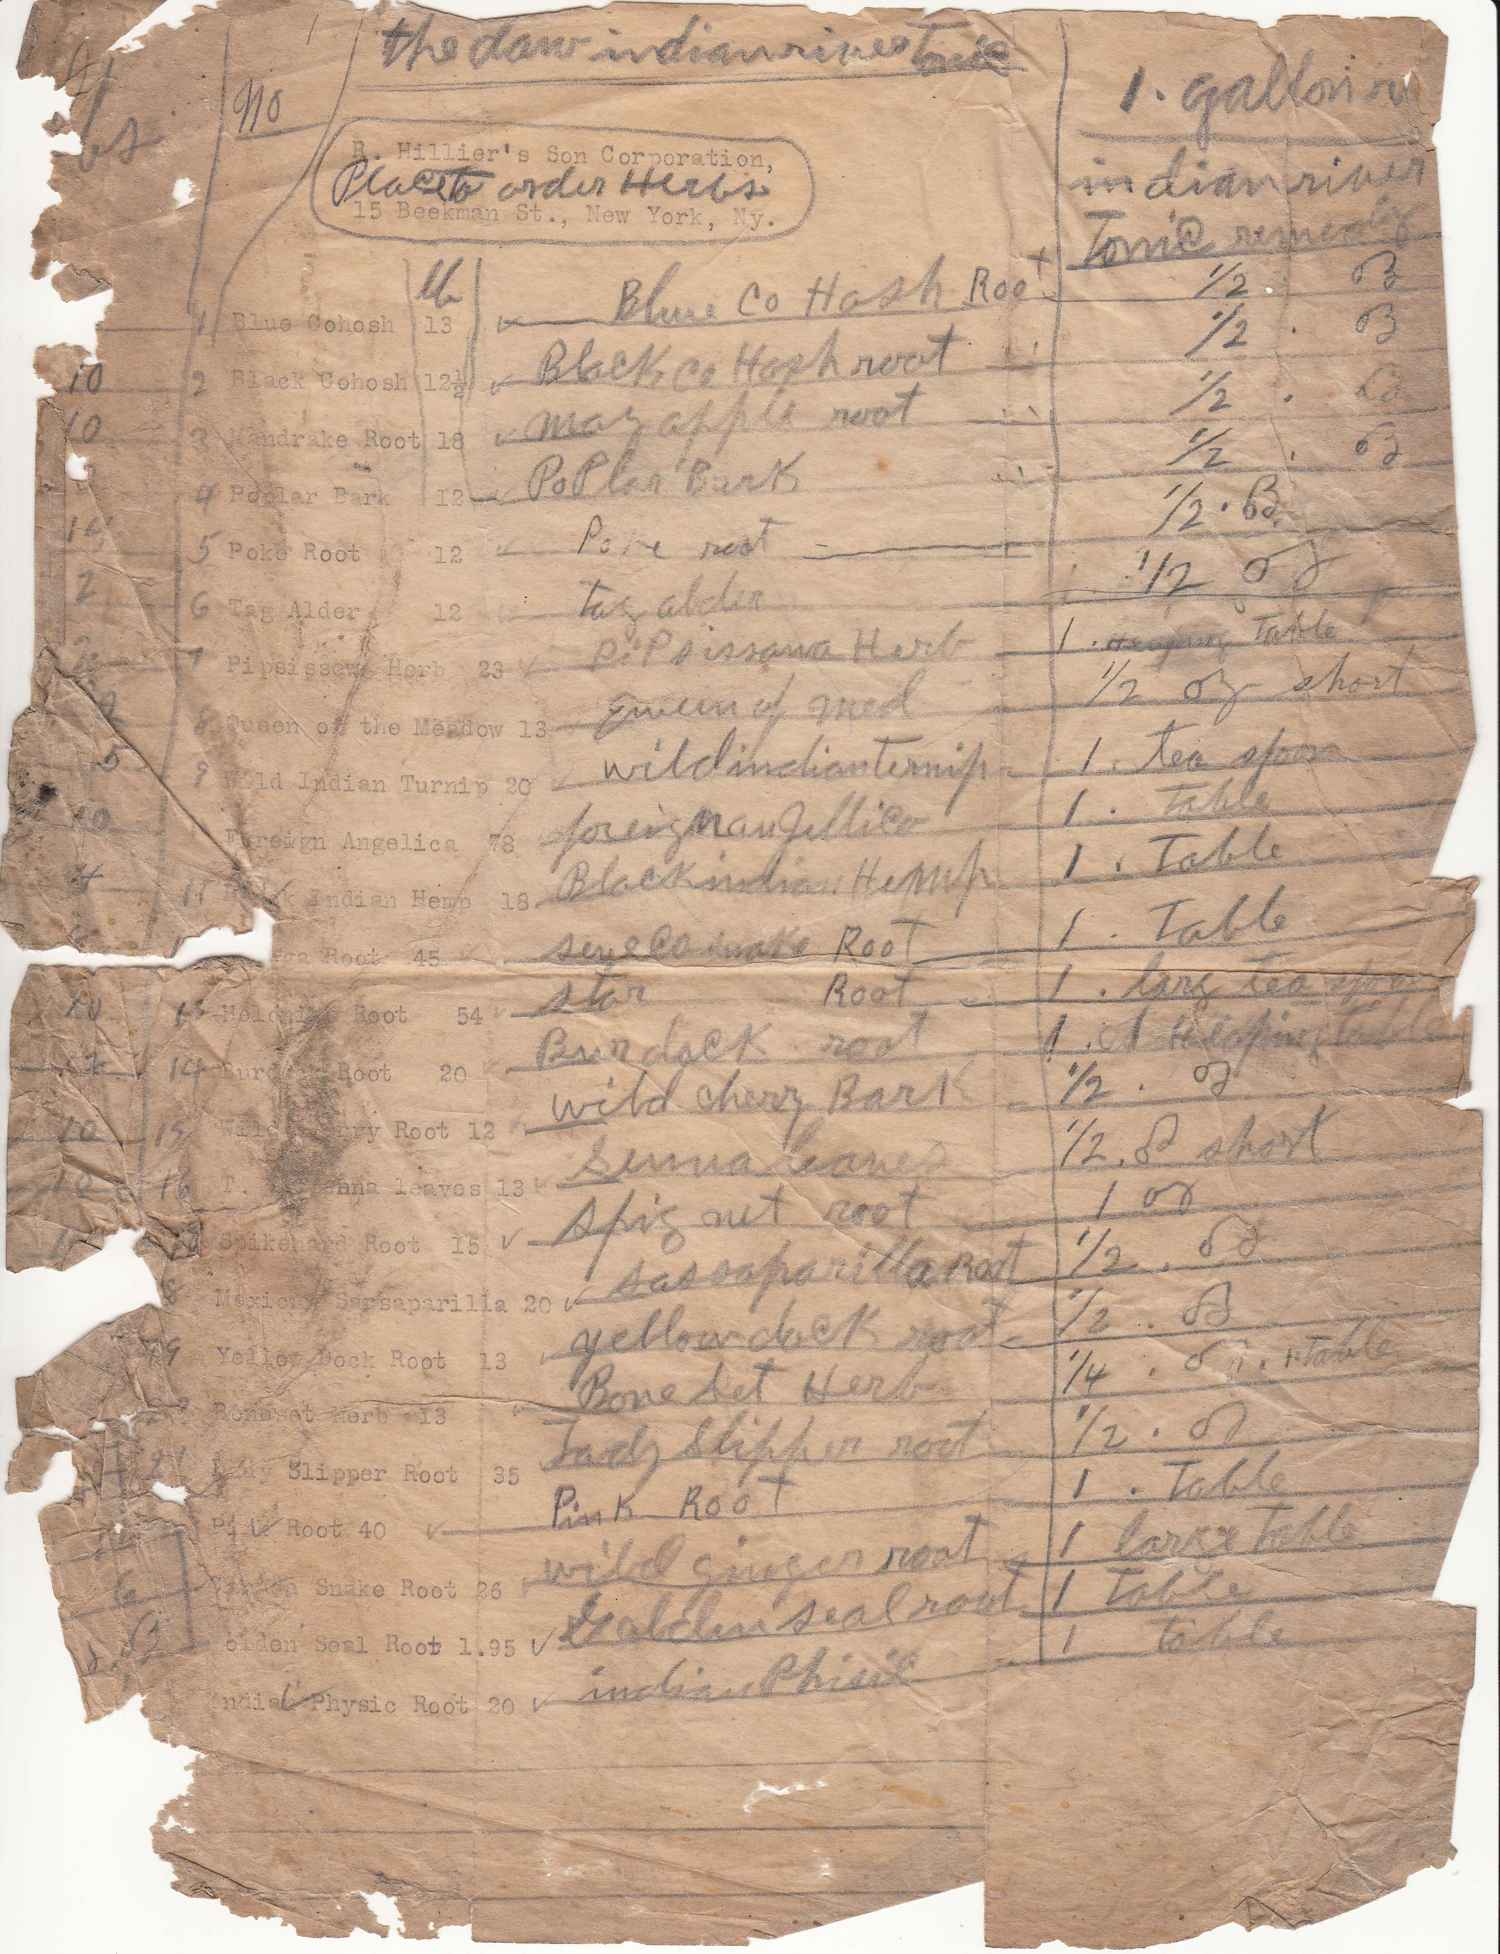 the daw indian river Tonic
No
1. gallon
bs
R. Hillier's Son Corporation,
Place to order Herbs
15 Beekman St., New York, Ny.
indian river
Tonic remedy
lb
1 Blue Cohosh 13 Blue Co Hosh Root 1/2 oz
10 2 Black Cohosh 12½ Black Co Hosh root 1/2 . oz
10 3 Mandrake Root 18 may apple root 1/2 . oz
4 Poplar Bark 12 PoPlar Bark 1/2 . oz
14 5 Poke Root 12 Poke root 1/2 . oz
2 6 Tag Alder 12 tag alder 1/2 oz
7 Pipsissewa Herb 23 PiPsissawa Herb 1 . Heaping Table
8 Queen of the Meadow 13 queen of med 1/2 oz short
5 9 Wild Indian Turnip 20 wild indian ternip 1 . tea spoon
10 Foreign Angelica 78 foreign an Jellico 1 . Table
4 11 Black Indian Hemp 18 Black indian Hemp 1 . Table
ga Root 45 seneco snake Root 1 . Table
13 Helonias Root 54 star Root 1 . larg tea spoon
14 Burdock Root 20 Burdock root 1 . Heaping table
10 15 Wild Cherry Root 12 wild cherry Bark 1/2 . oz
10 16 T. Senna leaves 13 Senna leaves 1/2 . oz short
Spikenard Root 15 spig net root 1 oz
8 Mexican Sarsaparilia 20 sassaparilla Root 1/2 . oz
19 Yellow Dock Root 13 yellow dock root 1/2 . oz
Boneset Herb 13 Bone Set Herb 1/4 . oz . 1 . table
21 Lady Slipper Root 35 Lady Slipper root 1/2 . oz
Pink Root 40 Pink Root 1 . Table
6 Snake Root 26 wild ginger root 1 large Table
olden Seal Root 1.95 Golden seal root 1 Table
ndian Physic Root 20 indian Phisic 1 table